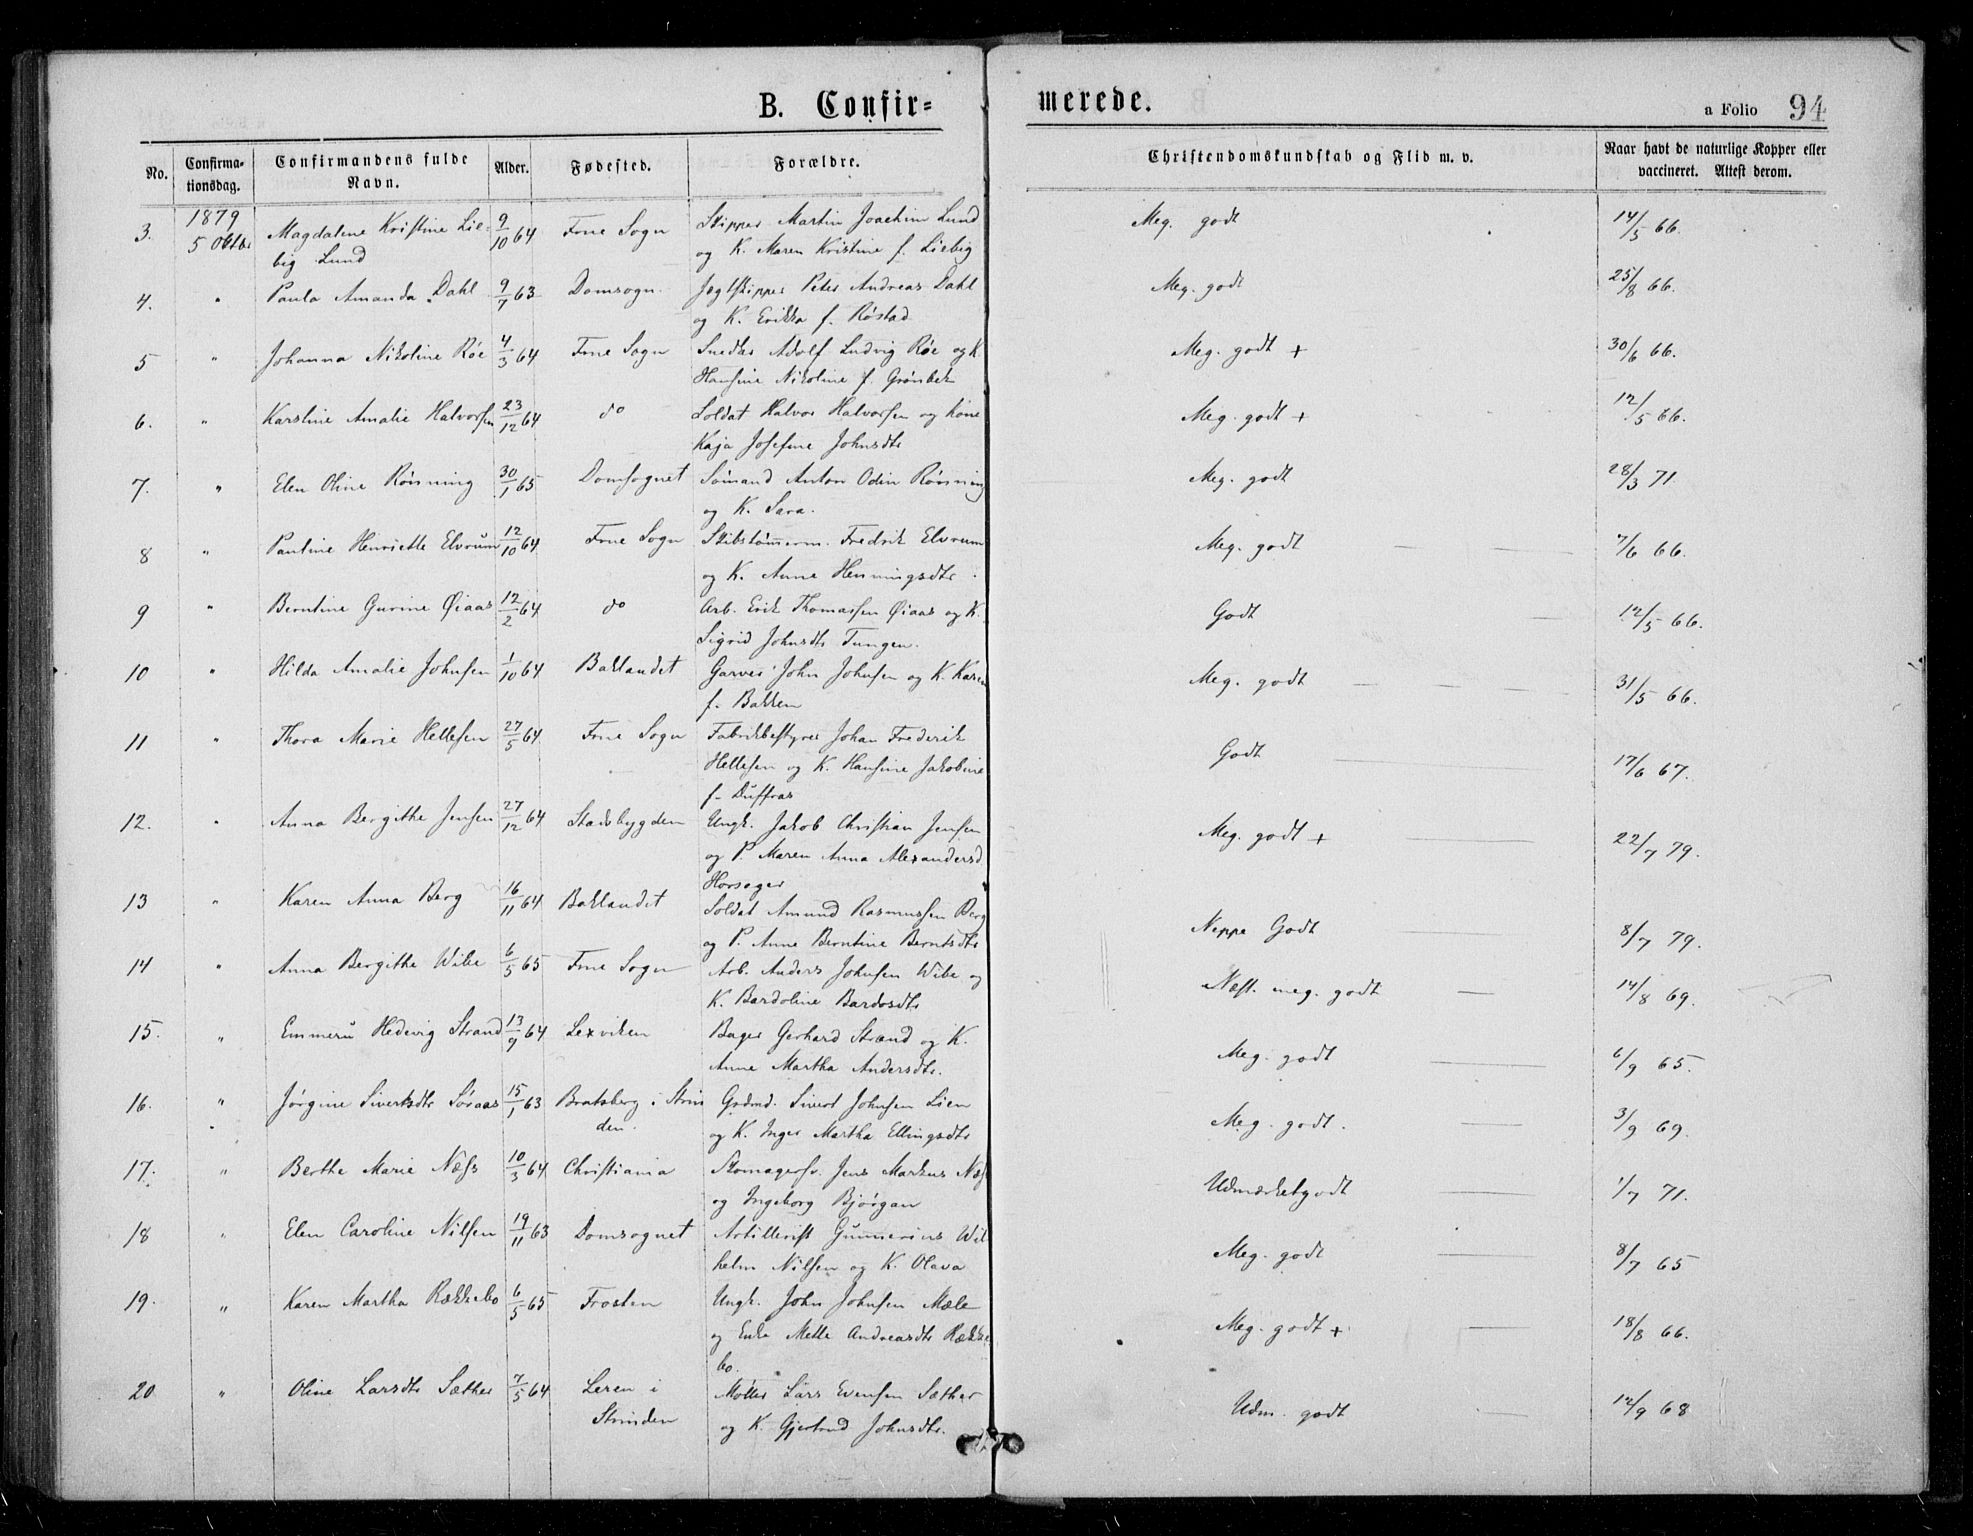 B. Confir=
merede.
a Folio 94
No.
Confirma-
tionsdag.
Confirmandens fulde
Navn.
Alder.
Fødested.
Forældre.
Christendomskundskab og Flid m. v.
Naar havt de naturlige Kopper eller
vaccineret. Attest derom.
3. 1879 5 Oktbr Magdalene Kristine Lie- 9/10 64 Frue Sogn Skipper Martin Joachim Lund Meg. godt 14/5 66.
big Lund og K. Maren Kristine f. Liebig
4. " Paula Amanda Dahl 9/7 63 Domsogn. Jagtskipper Peter Andreas Dahl Meg. godt 25/8 66.
og K. Erikka f. Røstad
5 " Johanna Nikoline Røe 4/3 64 Frue Sogn Snedker Adolf Ludvig Røe og K. Meg. godt + 30/6 66.
Hansine Nikoline f. Grønbek
6. " Karstine Amalie Halvorsen 23/12 64 do Soldat Halvor Halvorsen og Kone Meg. godt + 12/5 66.
Kaja Josefine Johnsdtr
7. " Elen Oline Rønning 30/1 65 Domsognet Sømand Anton Odin Rønning Meg. godt 28/3 71
og K. Sara.
8 " Pauline Henriette Elvrum 12/10 64 Frue Sogn Skibstømerm. Fredrik Elvrum Meg. godt 7/6 66.
og K. Anne Henningsdtr.
9 " Berntine Gurine Øiaas 12/2 64 do Arb. Erik Thomassen Øiaas og K. Godt 12/5 66.
Sigrid Johnsdtr Tungen.
10 " Hilda Amalie Johnsen 1/10 64 Baklandet Garver John Johnsen og K. Karen Meg. godt 31/5 66.
f. Bakken
11 " Thora Marie Hellesen 27/5 64 Frue Sogn Fabrikbestyrer Johan Frederik Godt 17/6 67.
Hellesen og K. Hansine Jakobine
f. Duffras
12. " Anna Bergithe Jensen 27/12 64 Stadsbygden Ungk. Jakob Christian Jensen Meg. godt + 22/7 79.
og P. Maren Anna Alexandersd.
Horsager
13 " Karen Anna Berg 16/11 64 Baklandet Soldat Amund Rasmussen Berg Neppe Godt 8/7 79.
og P. Anne Berntine Berntsdtr
14 " Anna Bergithe Wibe 6/5 65 Frue Sogn Arb. Anders Johnsen Wibe og Næst. meg. godt 14/8 69.
K. Bardoline Bardosdtr
15. " Emmeru Hedevig Strand 13/9 64 Lexviken Bager Gerhard Strand og K. Meg. godt 6/9 65.
Anne Martha Andersdtr.
16. " Jørgine Sivertsdtr Søraas 15/1 63 Bratsberg i Strin Grdmd. Sivert Johnsen Lien Meg. godt. 3/9 69.
den. og K. Inger Martha Ellingsdtr
17. " Berthe Marie Næss 10/3 64 Christiania Skomagersv. Jens Markus Næss Udmærketgodt 1/7 71.
og Ingeborg Bjørgan
18 " Elen Caroline Nilsen 19/11 63 Domsognet Artillerist Gunnerius Wil Meg. godt 8/7 65
helm Nilsen og K. Olava
19. " Karen Martha Rækkebo 6/5 65 Frosten Ungk. John Johnsen Mæle Meg. godt + 18/8 66.
og Enke Mette Andreasdtr Række
bo.
20 " Oline Larsdtr Sæther 7/5 64 Leren i Møller Lars Evensen Sæther Udm. godt 12/9 68
Strinden og K. Gjertrud Johnsdtr.